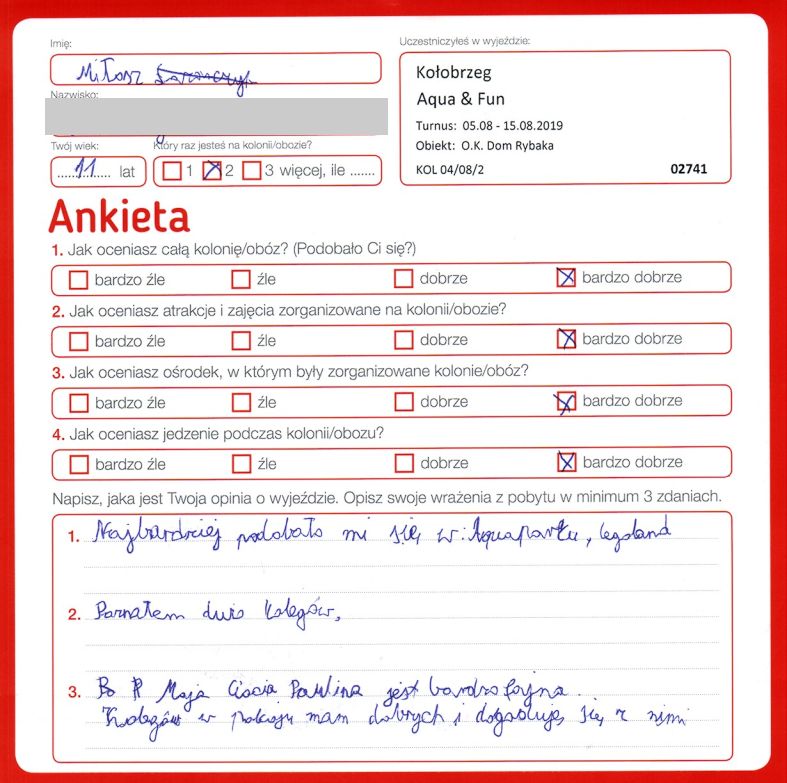 Imię:
Miłosz
Nazwisko:
Twój wiek:
Który raz jesteś na kolonii/obozie?
11 lat
1 2 3 więcej, ile .......
Uczestniczyłeś w wyjeździe:
Kołobrzeg
Aqua & Fun
Turnus: 05.08 - 15.08.2019
Obiekt: O.K. Dom Rybaka
KOL 04/08/2 02741
Ankieta
1. Jak oceniasz całą kolonię/obóz? (Podobało Ci się?)
bardzo źle źle dobrze bardzo dobrze
2. Jak oceniasz atrakcje i zajęcia zorganizowane na kolonii/obozie?
bardzo źle źle dobrze bardzo dobrze
3. Jak oceniasz ośrodek, w którym były zorganizowane kolonie/obóz?
bardzo źle źle dobrze bardzo dobrze
4. Jak oceniasz jedzenie podczas kolonii/obozu?
bardzo źle źle dobrze bardzo dobrze
Napisz, jaka jest Twoja opinia o wyjeździe. Opisz swoje wrażenia z pobytu w minimum 3 zdaniach.
1. Najbardziej podobało mi się w: Aquaparku, legoland
2. Poznałem dużo kolegów,
3. Moja Ciocia Paulina jest bardzo fajna.
Kolegów w pokoju mam dobrych i dogaduję się z nimi